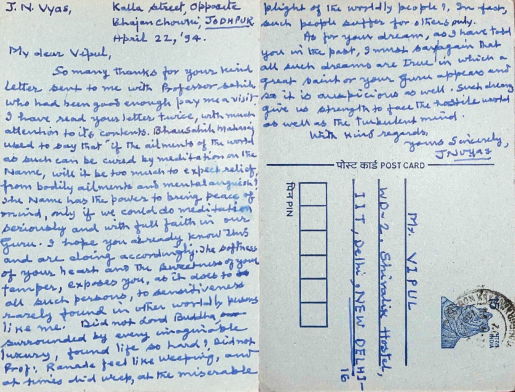 J.N. Vyas,
Kalla Street, Opposite
Bhajan Chowki, JODHPUR
April 22, '94.
My dear Vipul,
So many thanks for your kind
letter sent to me with Professor Sahib
who had been good enough pay me a visit.
I have read your letter twice, with much
attention to its contents. Bhausahib Maharaj
used to say that "if the ailments of the world
as such can be cured by meditation on the
Name, will it be too much to expect relief,
from bodily ailments and mental anguish?
The Name has the power to bring peace of
mind, only if we could do meditation
seriously and with full faith in our
Guru. I hope you already know this
and are doing accordingly. The softness
of your heart and the sweetness of your
temper, exposes you, as it does to
all such persons, to sensitiveness
rarely found in other worldly persons
like me. Did not Lord Buddha,
surrounded by every imaginable
luxury, found life so hard? Did not
Prof. Ranade feel like weeping, and
at times did weep, at the miserable
plight of the worldly people? In fact,
such people suffer for others only.
As for your dream, as I have told
you in the past, I must say again that
all such dreams are true in which a
great saint or your Guru appears and
so it is auspicious as well. Such dreams
give us strength to face the hostile world
as well as the turbulent mind.
With kind regards,
Yours Sincerely,
JNVyas
पोस्ट कार्ड POST CARD
पिन PIN
Mr. VIPUL
WD-2, Shivalik Hostel,
IIT, Delhi, NEW DELHI-
16